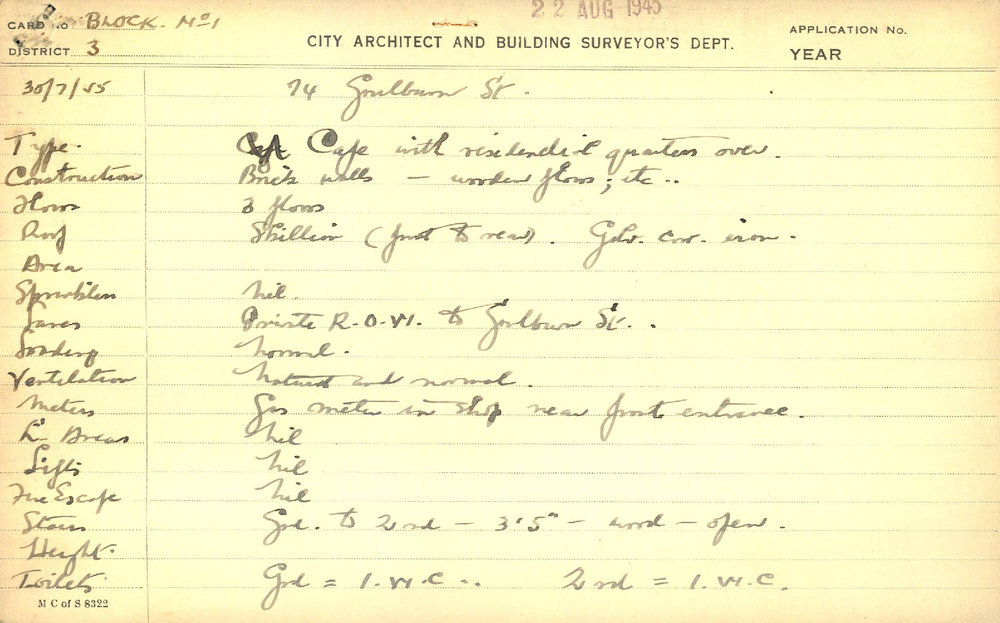 22 AUG 1945
CARD No BLOCK. No 1
DISTRICT 3
CITY ARCHITECT AND BUILDING SURVEYOR'S DEPT.
APPLICATION No.
YEAR
30/7/45 74 Goulburn St.
Type. Cafe with residential quarters over.
Construction Brick walls - wooden floors; etc..
Floors 3 floors
Roof Skillion (front to rear). Galv. cor. iron.
Area
Sprinklers nil.
Lanes Private R.O.W. to Goulburn St..
Loading normal.
Ventilation natural and normal.
Meters Gas meter in shop near front entrance.
L. Areas nil
Lifts nil
Fire Escape nil
Stairs Grd. to 2nd - 3'5" - wood - open.
Height.
Toilets Grd = 1. W.C.. 2nd = 1. W.C.
M C of S 8322